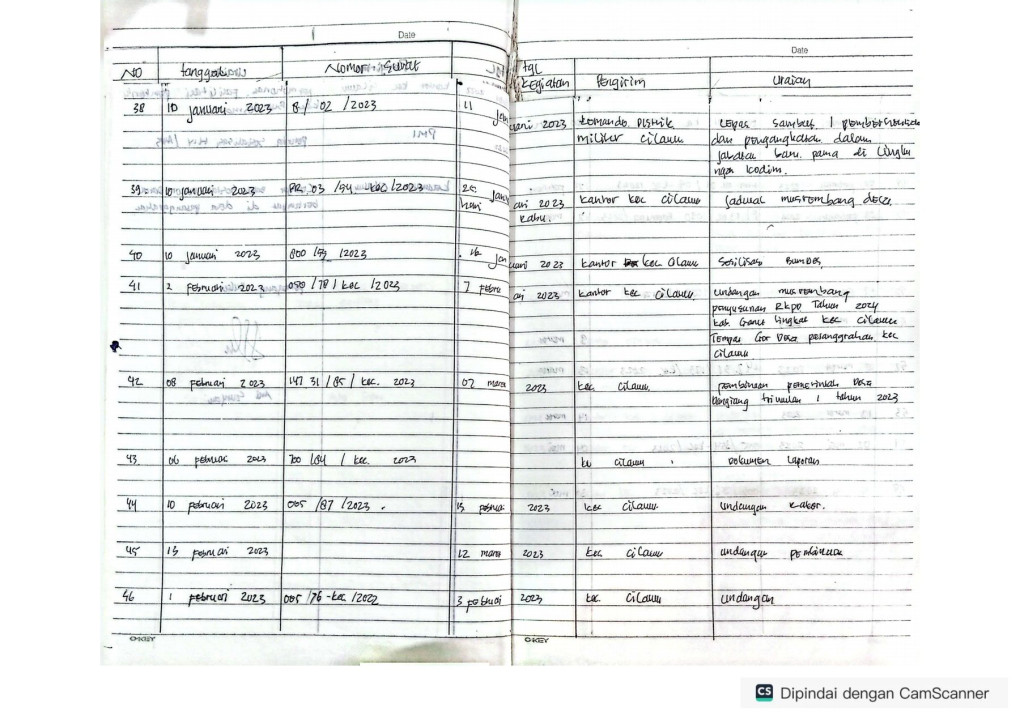 Date
Date
NO tanggal Nomor Surat tgl kegiatan Pengirim Uraian
38 10 januari 2023 B / 02 / 2023 11 januari 2023 Komando Distrik Lepas sambut
militer Cilawu dan pengangkatan dalam
jabatan baru pama di lingku
ngan kodim.
39 10 januari 2023 PR. 03 / 54. kec / 2023 januari 2023 kantor kec Cilawu Jadwal musrembang desa
rabu.
40 10 januari 2023 800 / 53 / 2023 16 januari 2023 kantor kec Cilawu Sosilisasi BumDes
41 2 Februari 2023 050 / 78 / kec / 2023 7 Februari 2023 kantor kec Cilawu Undangan musrembang
penyusunan Rkpd Tahun 2024
kab Garut tingkat kec Cilawu
Tempat Gor Desa pasanggrahan kec
Cilawu
42 08 Februari 2023 147 31 / 85 / kec. 2023 02 maret 2023 kec Cilawu pembinaan pemerintah Desa
triwulan 1 tahun 2023
43 06 Februari 2023 700 / 84 / kec 2023 Cilawu Dokumen Laporan
44 10 Februari 2023 005 / 87 / 2023 . 15 Februari 2023 kec Cilawu Undangan rakor.
45 13 Februari 2023 12 maret 2023 kec Cilawu undangan pembinaan
46 1 Februari 2023 005 / 76 - kec / 2022 3 Februari 2023 kec Cilawu undangan
OKEY
OKEY
CS Dipindai dengan CamScanner